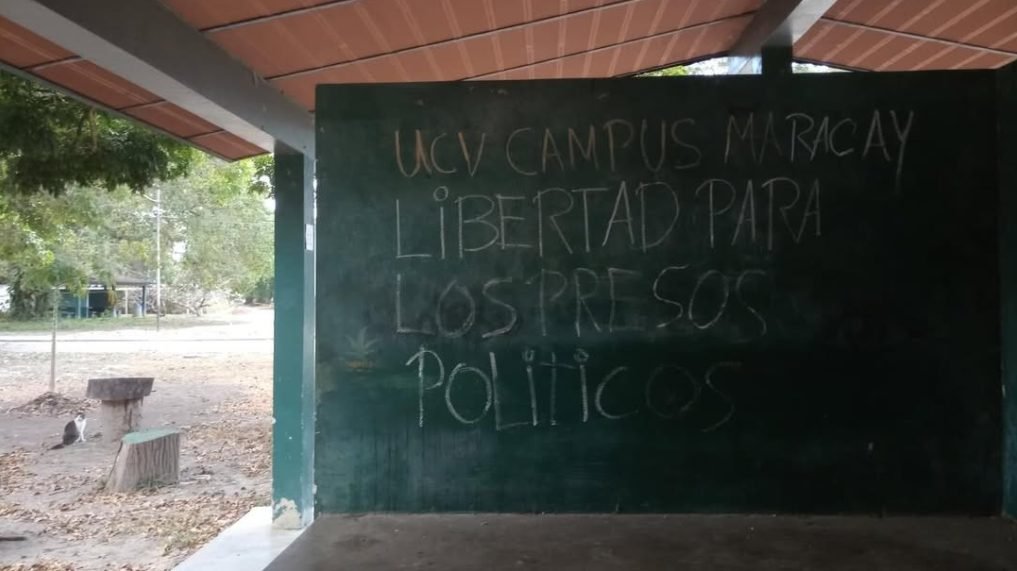 UCV CAMPUS MARACAY
LIBERTAD PARA
LOS PRESOS
POLITICOS